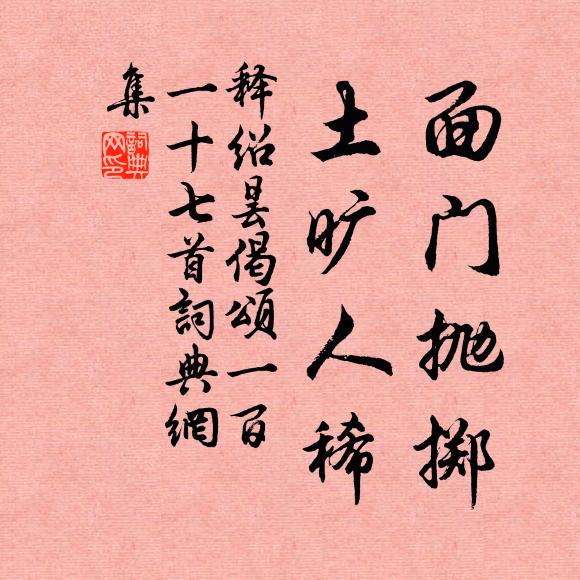 面门抛掷
土旷人稀
释绍昙偈頌一百
一十七首詞典網
集
詞典
网印